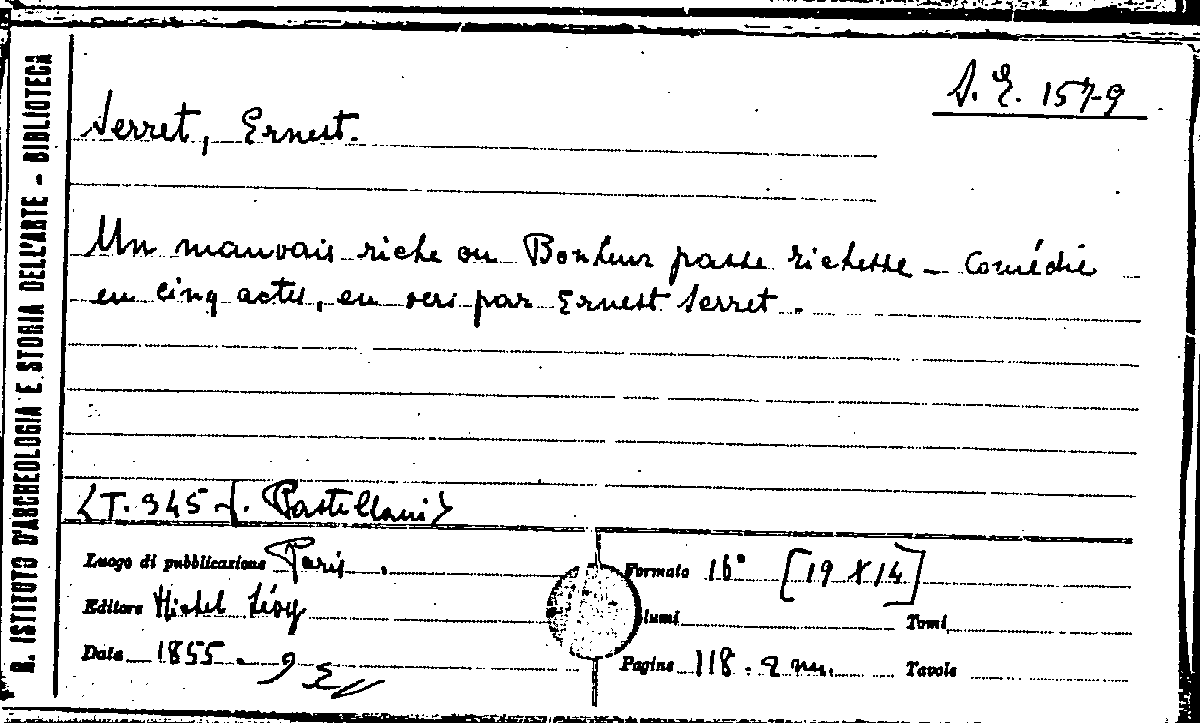 R. ISTITUTO D'ARCHEOLOGIA E STORIA DELL'ARTE - BIBLIOTECA
S. E. 157-9
Serret, Ernest.
Un mauvais riche ou Bonheur passe richesse - Comédie
en cinq actes, en vers par Ernest Serret.
<T. 345 - f. Castellani>
Luogo di pubblicazione Paris.
Formato 16° [19 X 14]
Editore Michel Lévy
lumi Tomi
Data 1855.
Pagine 118. 2 nn. Tavole